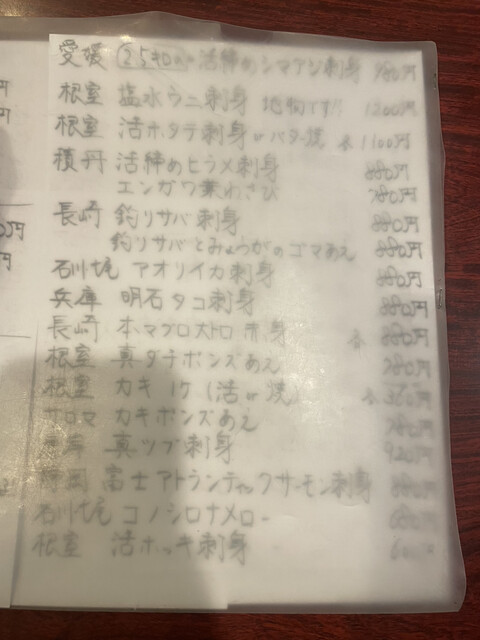 愛媛 活締めシマアジ刺身 980円
根室 塩水ウニ刺身 地物です!! 1200円
根室 活ホタテ刺身orバター焼 各1100円
積丹 活締めヒラメ刺身 880円
エンガワ葉わさび 780円
長崎 釣りサバ刺身 880円
釣りサバとみょうがのゴマあえ 880円
石川七尾 アオリイカ刺身 880円
兵庫 明石タコ刺身 880円
長崎 本マグロ 赤身 各 880円
根室 真ダチポンズあえ 780円
根室 カキ 1ケ (活or焼) 各360円
サロマ カキポンズあえ 780円
真ツブ刺身 920円
静岡 富士アトランティックサーモン刺身 880円
石川七尾 コノシロナメロー 680円
根室 活ホッキ刺身